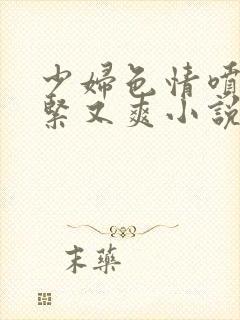 少婦色情噴
緊又爽小説
末藥